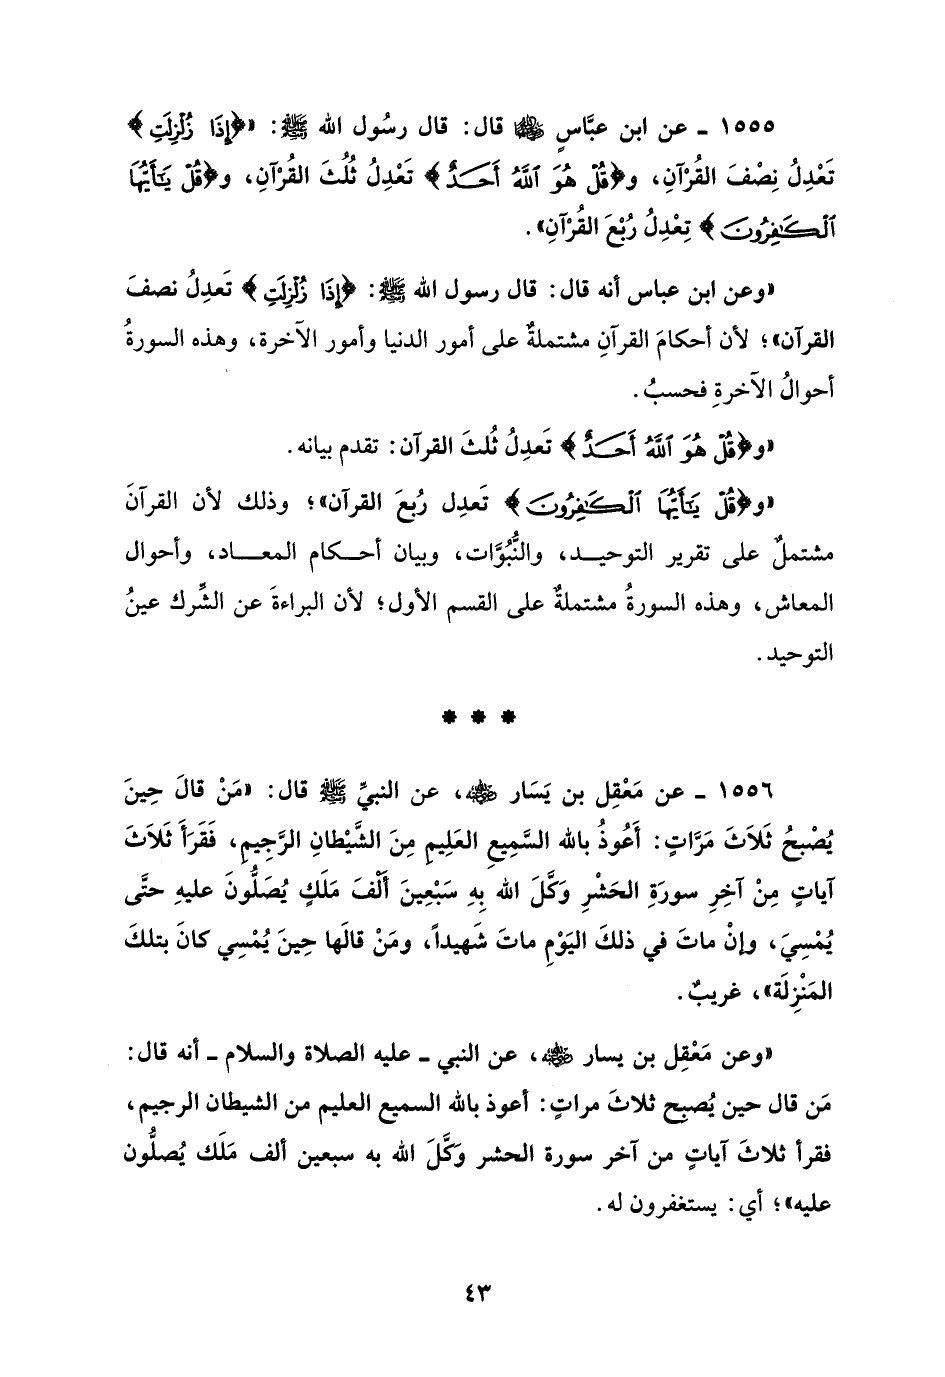 ١٥٥٥ ـ عن ابن عبَّاسٍ ﵄ قال: قال رسُول الله ﷺ: «﴿إِذَا زُلْزِلَتِ﴾
تَعْدِلُ نِصْفَ القُرْآنِ، و﴿قُلْ هُوَ ٱللَّهُ أَحَدٌ﴾ تَعْدِلُ ثُلُثَ القُرْآنِ، و﴿قُلْ يَٰٓأَيُّهَا
ٱلْكَٰفِرُونَ﴾ تَعْدِلُ رُبْعَ القُرْآنِ».
«وعن ابن عباس أنه قال: قال رسول الله ﷺ: ﴿إِذَا زُلْزِلَتِ﴾ تَعدِلُ نصفَ
القرآن»؛ لأن أحكامَ القرآنِ مشتملةٌ على أمور الدنيا وأمور الآخرة، وهذه السورةُ
أحوالُ الآخرةِ فحسبُ.
«و﴿قُلْ هُوَ ٱللَّهُ أَحَدٌ﴾ تَعدِلُ ثُلثَ القرآن: تقدم بيانه.
«و﴿قُلْ يَٰٓأَيُّهَا ٱلْكَٰفِرُونَ﴾ تَعدِل رُبعَ القرآن»؛ وذلك لأن القرآنَ
مشتملٌ على تقرير التوحيد، والنُّبُوَّات، وبيان أحكام المعاد، وأحوال
المعاش، وهذه السورةُ مشتملةٌ على القسم الأول؛ لأن البراءةَ عن الشِّرك عينُ
التوحيد.
* * *
١٥٥٦ ـ عن مَعْقِل بن يَسَار ﵁، عن النبيِّ ﷺ قال: «مَنْ قالَ حِينَ
يُصْبحُ ثَلاثَ مَرَّاتٍ: أَعُوذُ بالله السَّمِيعِ العَلِيمِ مِنَ الشَّيْطانِ الرَّجِيمِ، فَقَرَأَ ثَلاثَ
آياتٍ مِنْ آخِرِ سورَةِ الحَشْرِ وَكَّلَ الله بِهِ سَبْعِينَ أَلْفَ مَلَكٍ يُصَلُّونَ عليهِ حتَّى
يُمْسِيَ، وإنْ ماتَ في ذلكَ اليَوْمِ ماتَ شَهيداً، ومَنْ قالَها حِينَ يُمْسِي كانَ بتلكَ
المَنْزِلَة»، غريبٌ.
«وعن مَعْقِل بن يسار ﵁، عن النبي ـ عليه الصلاة والسلام ـ أنه قال:
مَن قال حين يُصبح ثلاثَ مراتٍ: أعوذ بالله السميع العليم من الشيطان الرجيم،
فقرأ ثلاثَ آياتٍ من آخر سورة الحشر وَكَّلَ الله به سبعين ألف مَلَك يُصلُّون
عليه»؛ أي: يستغفرون له.
٤٣